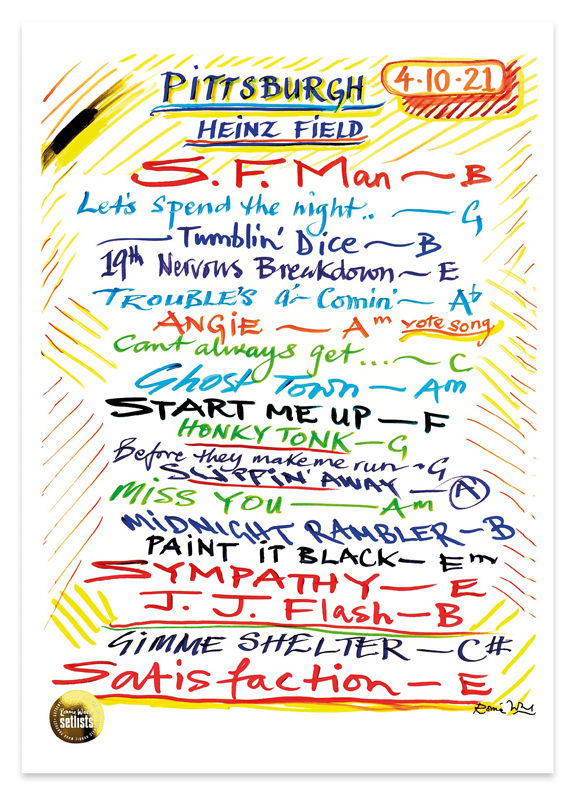 PITTSBURGH
4·10·21
HEINZ FIELD
S.F. Man ~ B
Let's spend the night.. — G
— Tumblin' Dice ~ B
19th Nervous Breakdown ~ E
TROUBLE'S a'~ Comin' ~ Ab
ANGIE ~ Am vote song
Cant always get... ~ C
Ghost Town ~ Am
START ME UP — F
HONKY TONK — G
Before they make me run • G
SLIPPIN' AWAY — A
MISS YOU — Am
MIDNIGHT RAMBLER - B
PAINT IT BLACK - Em
SYMPATHY - E
J. J. Flash - B
GIMME SHELTER - C#
Satisfaction - E
Ronnie Wood
setlists